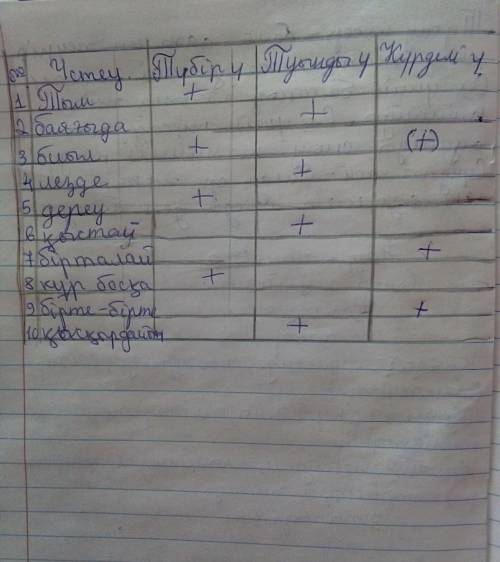 № Үстеу Түбір ү Туынды ү Күрделі ү
1 Тым +
2 баяғыда +
3 биыл + (+)
4 лезде +
5 дереу +
6 қыстай +
7 бірталай +
8 құр босқа +
9 бірте-бірте +
10 +